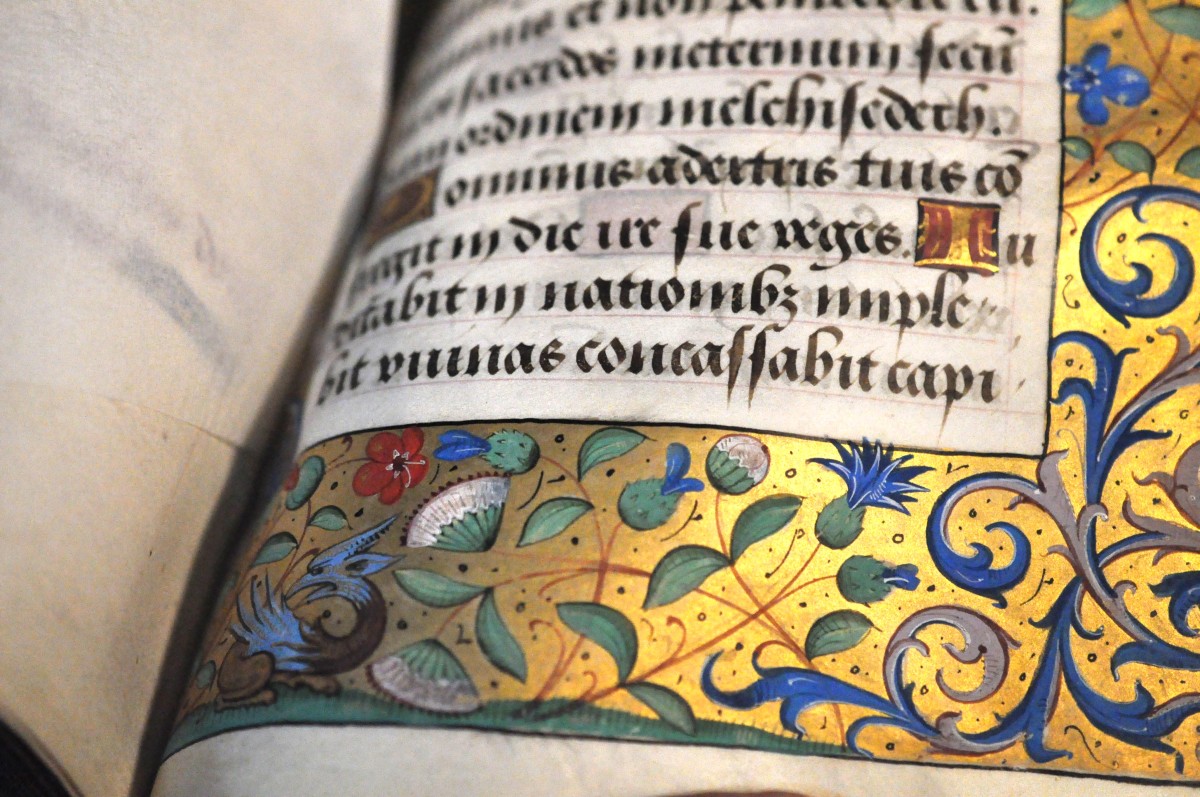 et non penitebit eu.
sacerdos ineternum secū
ordinem melchisedech.
ominus adextris tuis cō
fregit in die ire sue reges. Iu
dicabit in nationibꝫ imple
bit ruinas concassabit capi